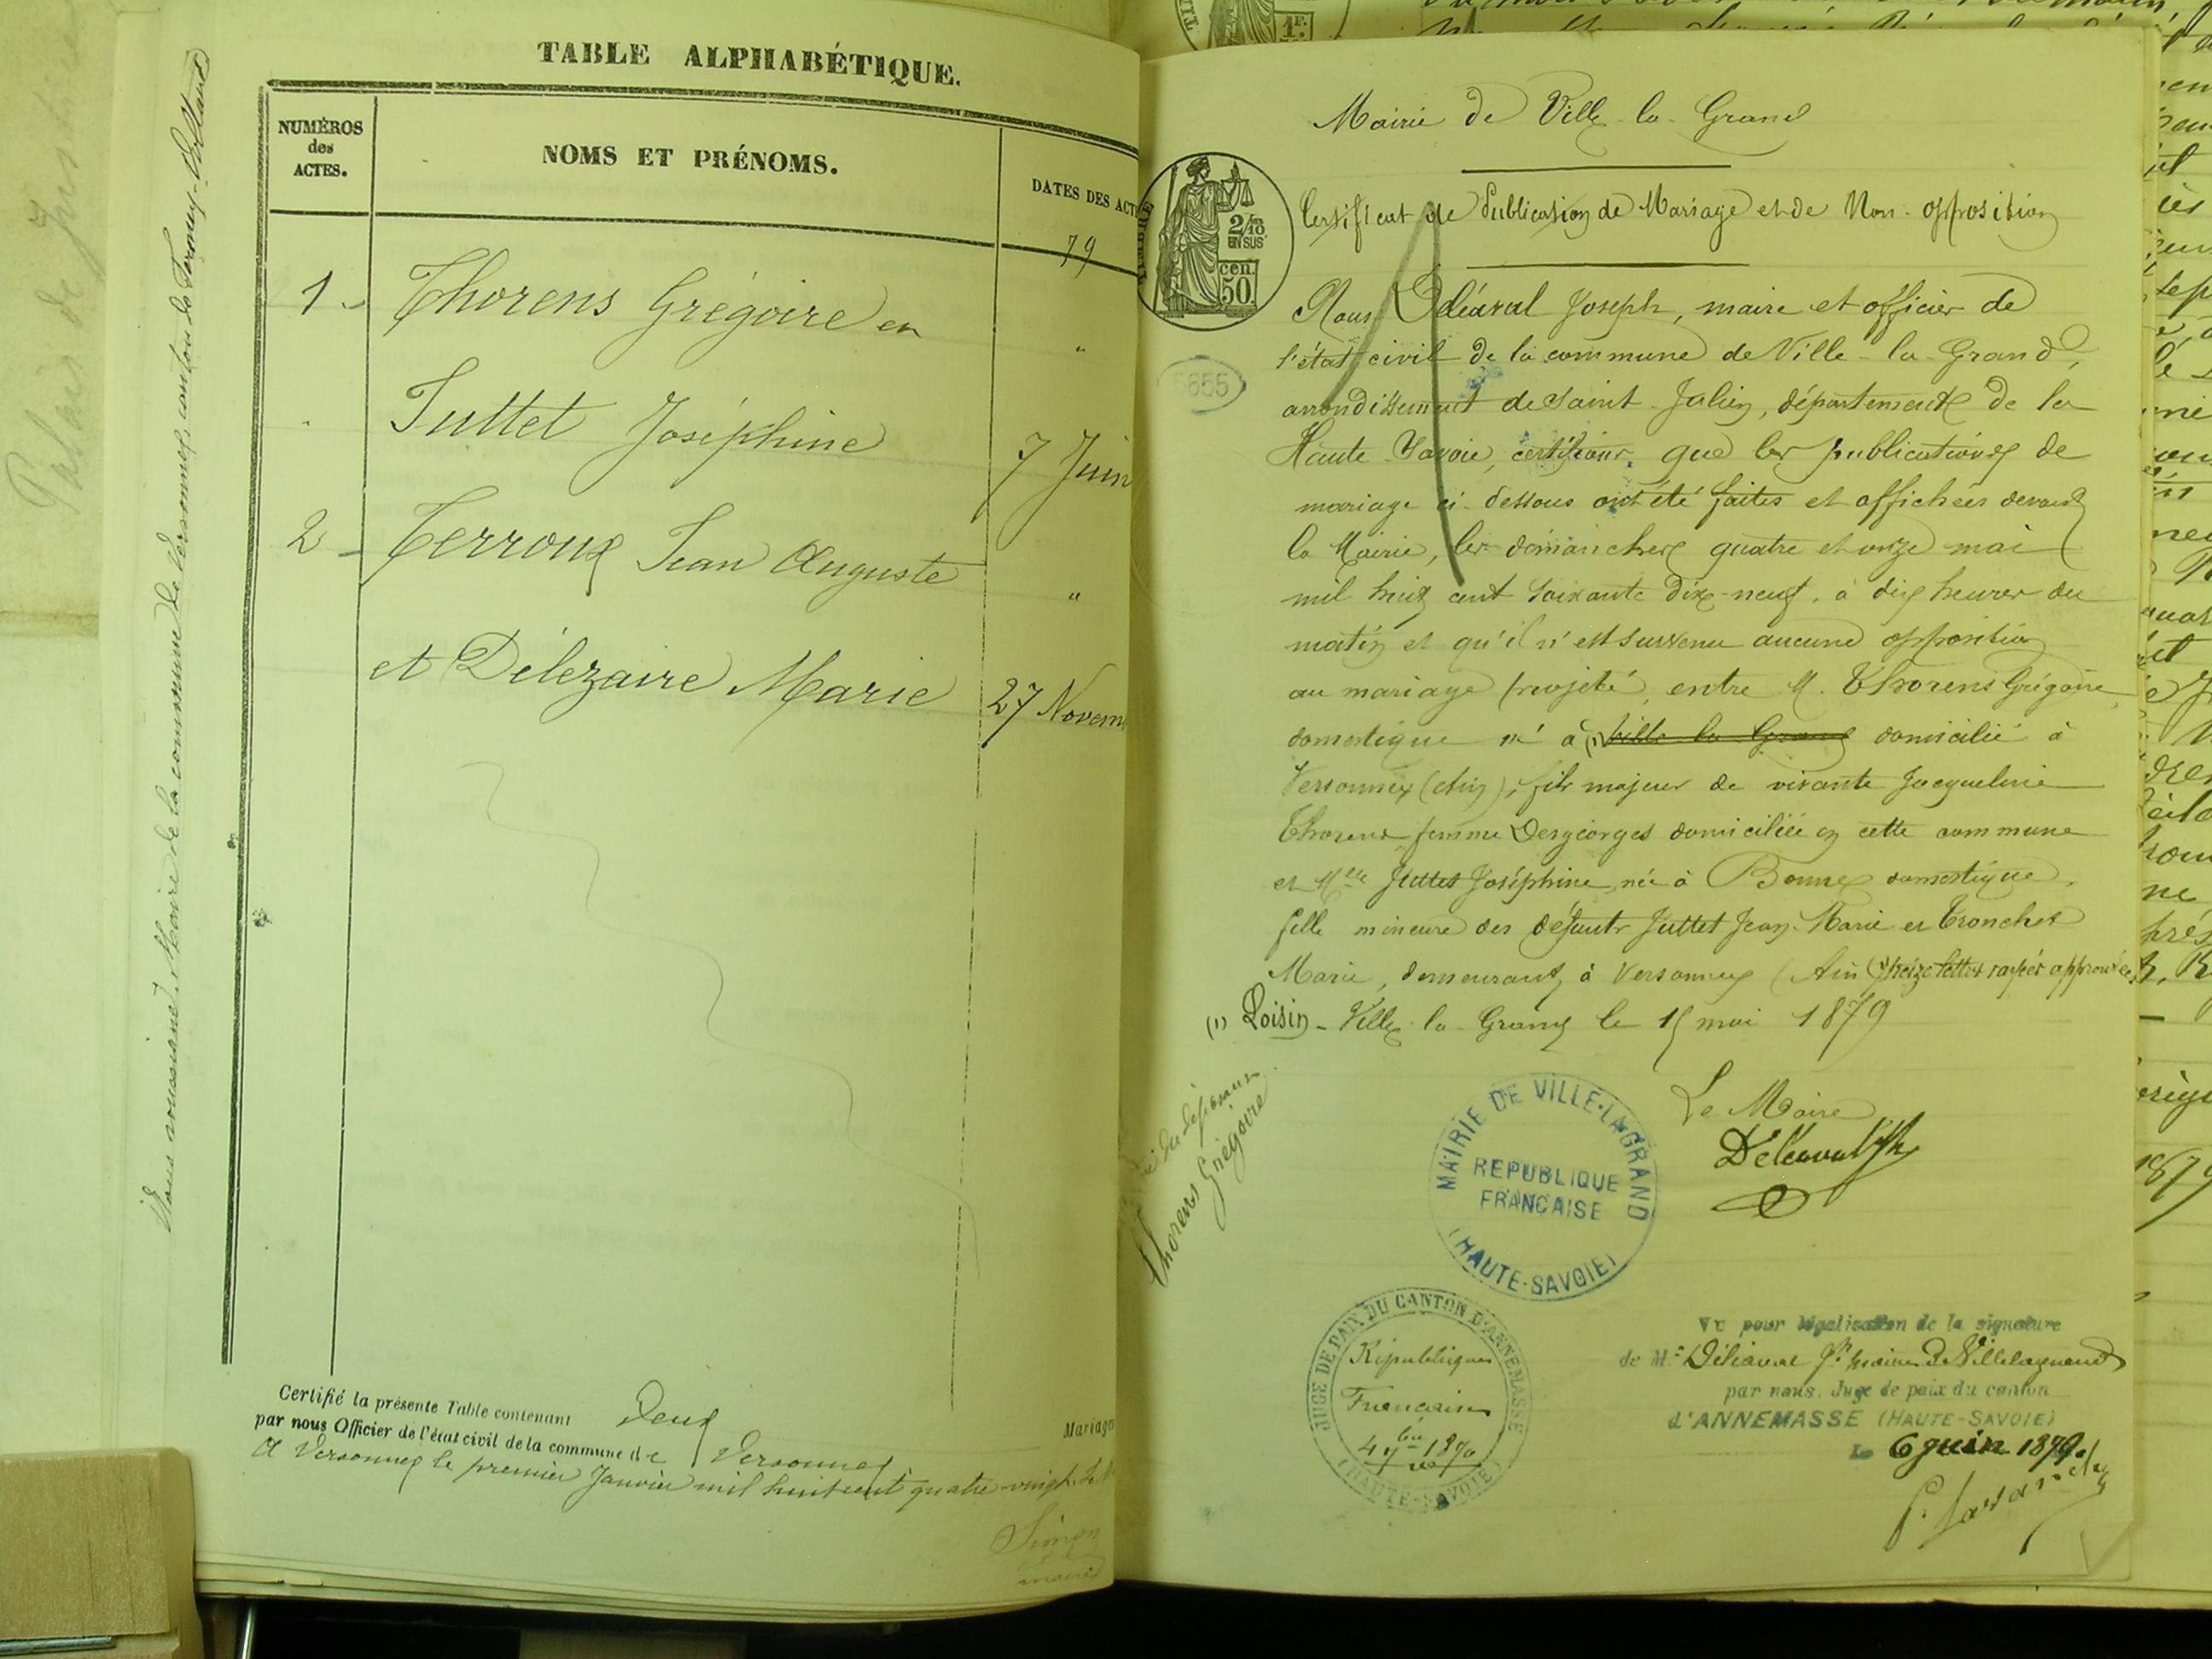 TABLE ALPHABÉTIQUE.
NUMÉROS
des
ACTES.
NOMS ET PRÉNOMS.
DATES DES ACT
79
1 - Thorens Grégoire en "
Juttet Joséphine 7 Juin
2 - Terroux Jean Auguste "
et Délezaire Marie 27 Novem
Certifié la présente Table contenant Deux Mariages
par nous Officier de l'état civil de la commune de Versonnex
A Versonnex le premier Janvier mil huit cent quatre-vingt. Le M
Simon
maire
Nous soussigné, Maire de la commune de Versonnex, canton de Ferney-Voltaire
Palais de Justice
Mairie de Ville-la-Grand
Certificat de Publication de Mariage et de Non-opposition
2/10
EN SUS
cen.
50.
5655
Nous Déléaval Joseph, maire et officier de
l'état civil de la commune de Ville-la-Grand,
arrondissement de Saint-Julien, département de la
Haute Savoie, certifions que les publications de
mariage ci-dessous ont été faites et affichées devant
la Mairie, les dimanches quatre et onze mai
mil huit cent soixante dix-neuf, à dix heures du
matin et qu'il n'est survenu aucune opposition
au mariage projeté, entre M. Thorens Grégoire,
domestique né à (1) Ville la Grand domicilié à
Versonnex (Ain), fils majeur de vivante Jacqueline
Thorens femme Desgeorges domiciliée en cette commune
et Melle Juttet Joséphine, née à Bonnex domestique,
fille mineure des défunts Juttet Jean-Marie et Tronchet
Marie, demeurant à Versonnex (Ain) seize lettres rayées approuvées
(1) Loisin - Ville-la-Grand le 15 mai 1879
Le Maire
Déléaval Jh
Thorens Grégoire
MAIRIE DE VILLE-LA-GRAND
REPUBLIQUE
FRANCAISE
(HAUTE-SAVOIE)
JUGE DE PAIX DU CANTON D'ANNEMASSE
République
Française
4 7bre 1870
(HAUTE-SAVOIE)
Vu pour légalisation de la signature
de Mr Déléaval Jh maire de Villelagrand
par nous, Juge de paix du canton
d'ANNEMASSE (HAUTE-SAVOIE)
Le 6 juin 1879